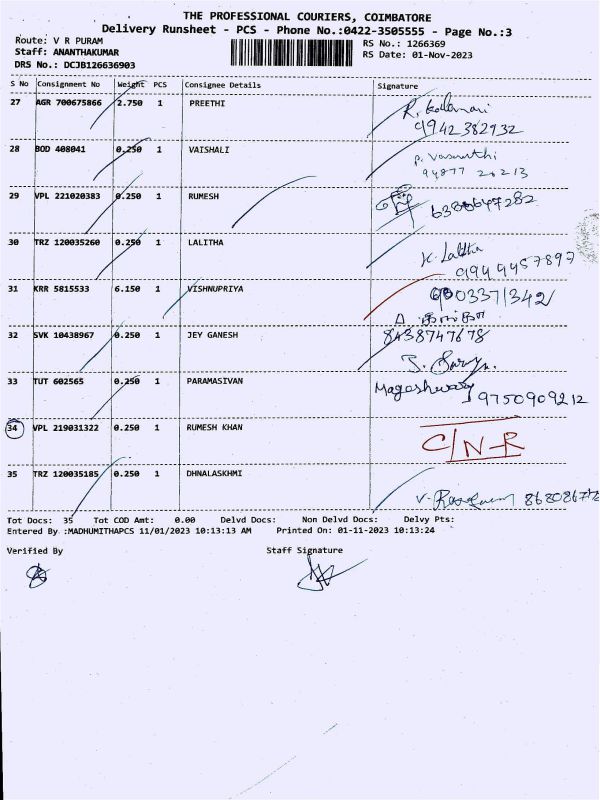 THE PROFESSIONAL COURIERS, COIMBATORE
Delivery Runsheet - PCS - Phone No.:0422-3505555 - Page No.:3
Route: V R PURAM
RS No.: 1266369
Staff: ANANTHAKUMAR
RS Date: 01-Nov-2023
DRS No.: DCJB126636903
S No Consignment No Weight PCS Consignee Details Signature
27 AGR 700675866 2.750 1 PREETHI
9942382932
28 BOD 408041 0.250 1 VAISHALI
P. Vasunthi
94877 20213
29 VPL 221020383 0.250 1 RUMESH
6380647282
30 TRZ 120035260 0.250 1 LALITHA
K. Lalitha
9944457897
31 KRR 5815533 6.150 1 VISHNUPRIYA
32 SVK 10438967 0.250 1 JEY GANESH
8438747678
33 TUT 602565 0.250 1 PARAMASIVAN
Mageshwary
9750909212
34 VPL 219031322 0.250 1 RUMESH KHAN
C/N-R
35 TRZ 120035185 0.250 1 DHNALASKHMI
Tot Docs: 35 Tot COD Amt: 0.00 Delvd Docs: Non Delvd Docs: Delvy Pts:
Entered By :MADHUMITHAPCS 11/01/2023 10:13:13 AM Printed On: 01-11-2023 10:13:24
Verified By Staff Signature